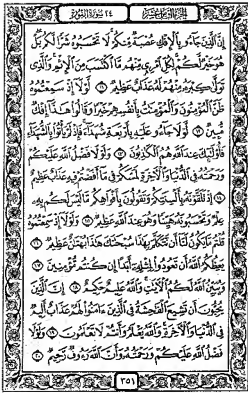 الجزء الثامن عشر ٢٤ سورة النور
إِنَّ ٱلَّذِينَ جَآءُو بِٱلْإِفْكِ عُصْبَةٌ مِّنكُمْ لَا تَحْسَبُوهُ شَرًّا لَّكُم بَلْ
هُوَ خَيْرٌ لَّكُمْ لِكُلِّ ٱمْرِئٍ مِّنْهُم مَّا ٱكْتَسَبَ مِنَ ٱلْإِثْمِ وَٱلَّذِى
تَوَلَّىٰ كِبْرَهُۥ مِنْهُمْ لَهُۥ عَذَابٌ عَظِيمٌ ١١ لَّوْلَآ إِذْ سَمِعْتُمُوهُ
ظَنَّ ٱلْمُؤْمِنُونَ وَٱلْمُؤْمِنَٰتُ بِأَنفُسِهِمْ خَيْرًا وَقَالُوا۟ هَٰذَآ إِفْكٌ
مُّبِينٌ ١٢ لَّوْلَا جَآءُو عَلَيْهِ بِأَرْبَعَةِ شُهَدَآءَ فَإِذْ لَمْ يَأْتُوا۟ بِٱلشُّهَدَآءِ
فَأُو۟لَٰٓئِكَ عِندَ ٱللَّهِ هُمُ ٱلْكَٰذِبُونَ ١٣ وَلَوْلَا فَضْلُ ٱللَّهِ عَلَيْكُمْ
وَرَحْمَتُهُۥ فِى ٱلدُّنْيَا وَٱلْءَاخِرَةِ لَمَسَّكُمْ فِى مَآ أَفَضْتُمْ فِيهِ عَذَابٌ عَظِيمٌ
١٤ إِذْ تَلَقَّوْنَهُۥ بِأَلْسِنَتِكُمْ وَتَقُولُونَ بِأَفْوَاهِكُم مَّا لَيْسَ لَكُم بِهِۦ
عِلْمٌ وَتَحْسَبُونَهُۥ هَيِّنًا وَهُوَ عِندَ ٱللَّهِ عَظِيمٌ ١٥ وَلَوْلَآ إِذْ سَمِعْتُمُوهُ
قُلْتُم مَّا يَكُونُ لَنَآ أَن نَّتَكَلَّمَ بِهَٰذَا سُبْحَٰنَكَ هَٰذَا بُهْتَٰنٌ عَظِيمٌ ١٦
يَعِظُكُمُ ٱللَّهُ أَن تَعُودُوا۟ لِمِثْلِهِۦٓ أَبَدًا إِن كُنتُم مُّؤْمِنِينَ ١٧
وَيُبَيِّنُ ٱللَّهُ لَكُمُ ٱلْءَايَٰتِ وَٱللَّهُ عَلِيمٌ حَكِيمٌ ١٨ إِنَّ ٱلَّذِينَ
يُحِبُّونَ أَن تَشِيعَ ٱلْفَٰحِشَةُ فِى ٱلَّذِينَ ءَامَنُوا۟ لَهُمْ عَذَابٌ أَلِيمٌ
فِى ٱلدُّنْيَا وَٱلْءَاخِرَةِ وَٱللَّهُ يَعْلَمُ وَأَنتُمْ لَا تَعْلَمُونَ ١٩ وَلَوْلَا
فَضْلُ ٱللَّهِ عَلَيْكُمْ وَرَحْمَتُهُۥ وَأَنَّ ٱللَّهَ رَءُوفٌ رَّحِيمٌ ٢٠
٣٥١